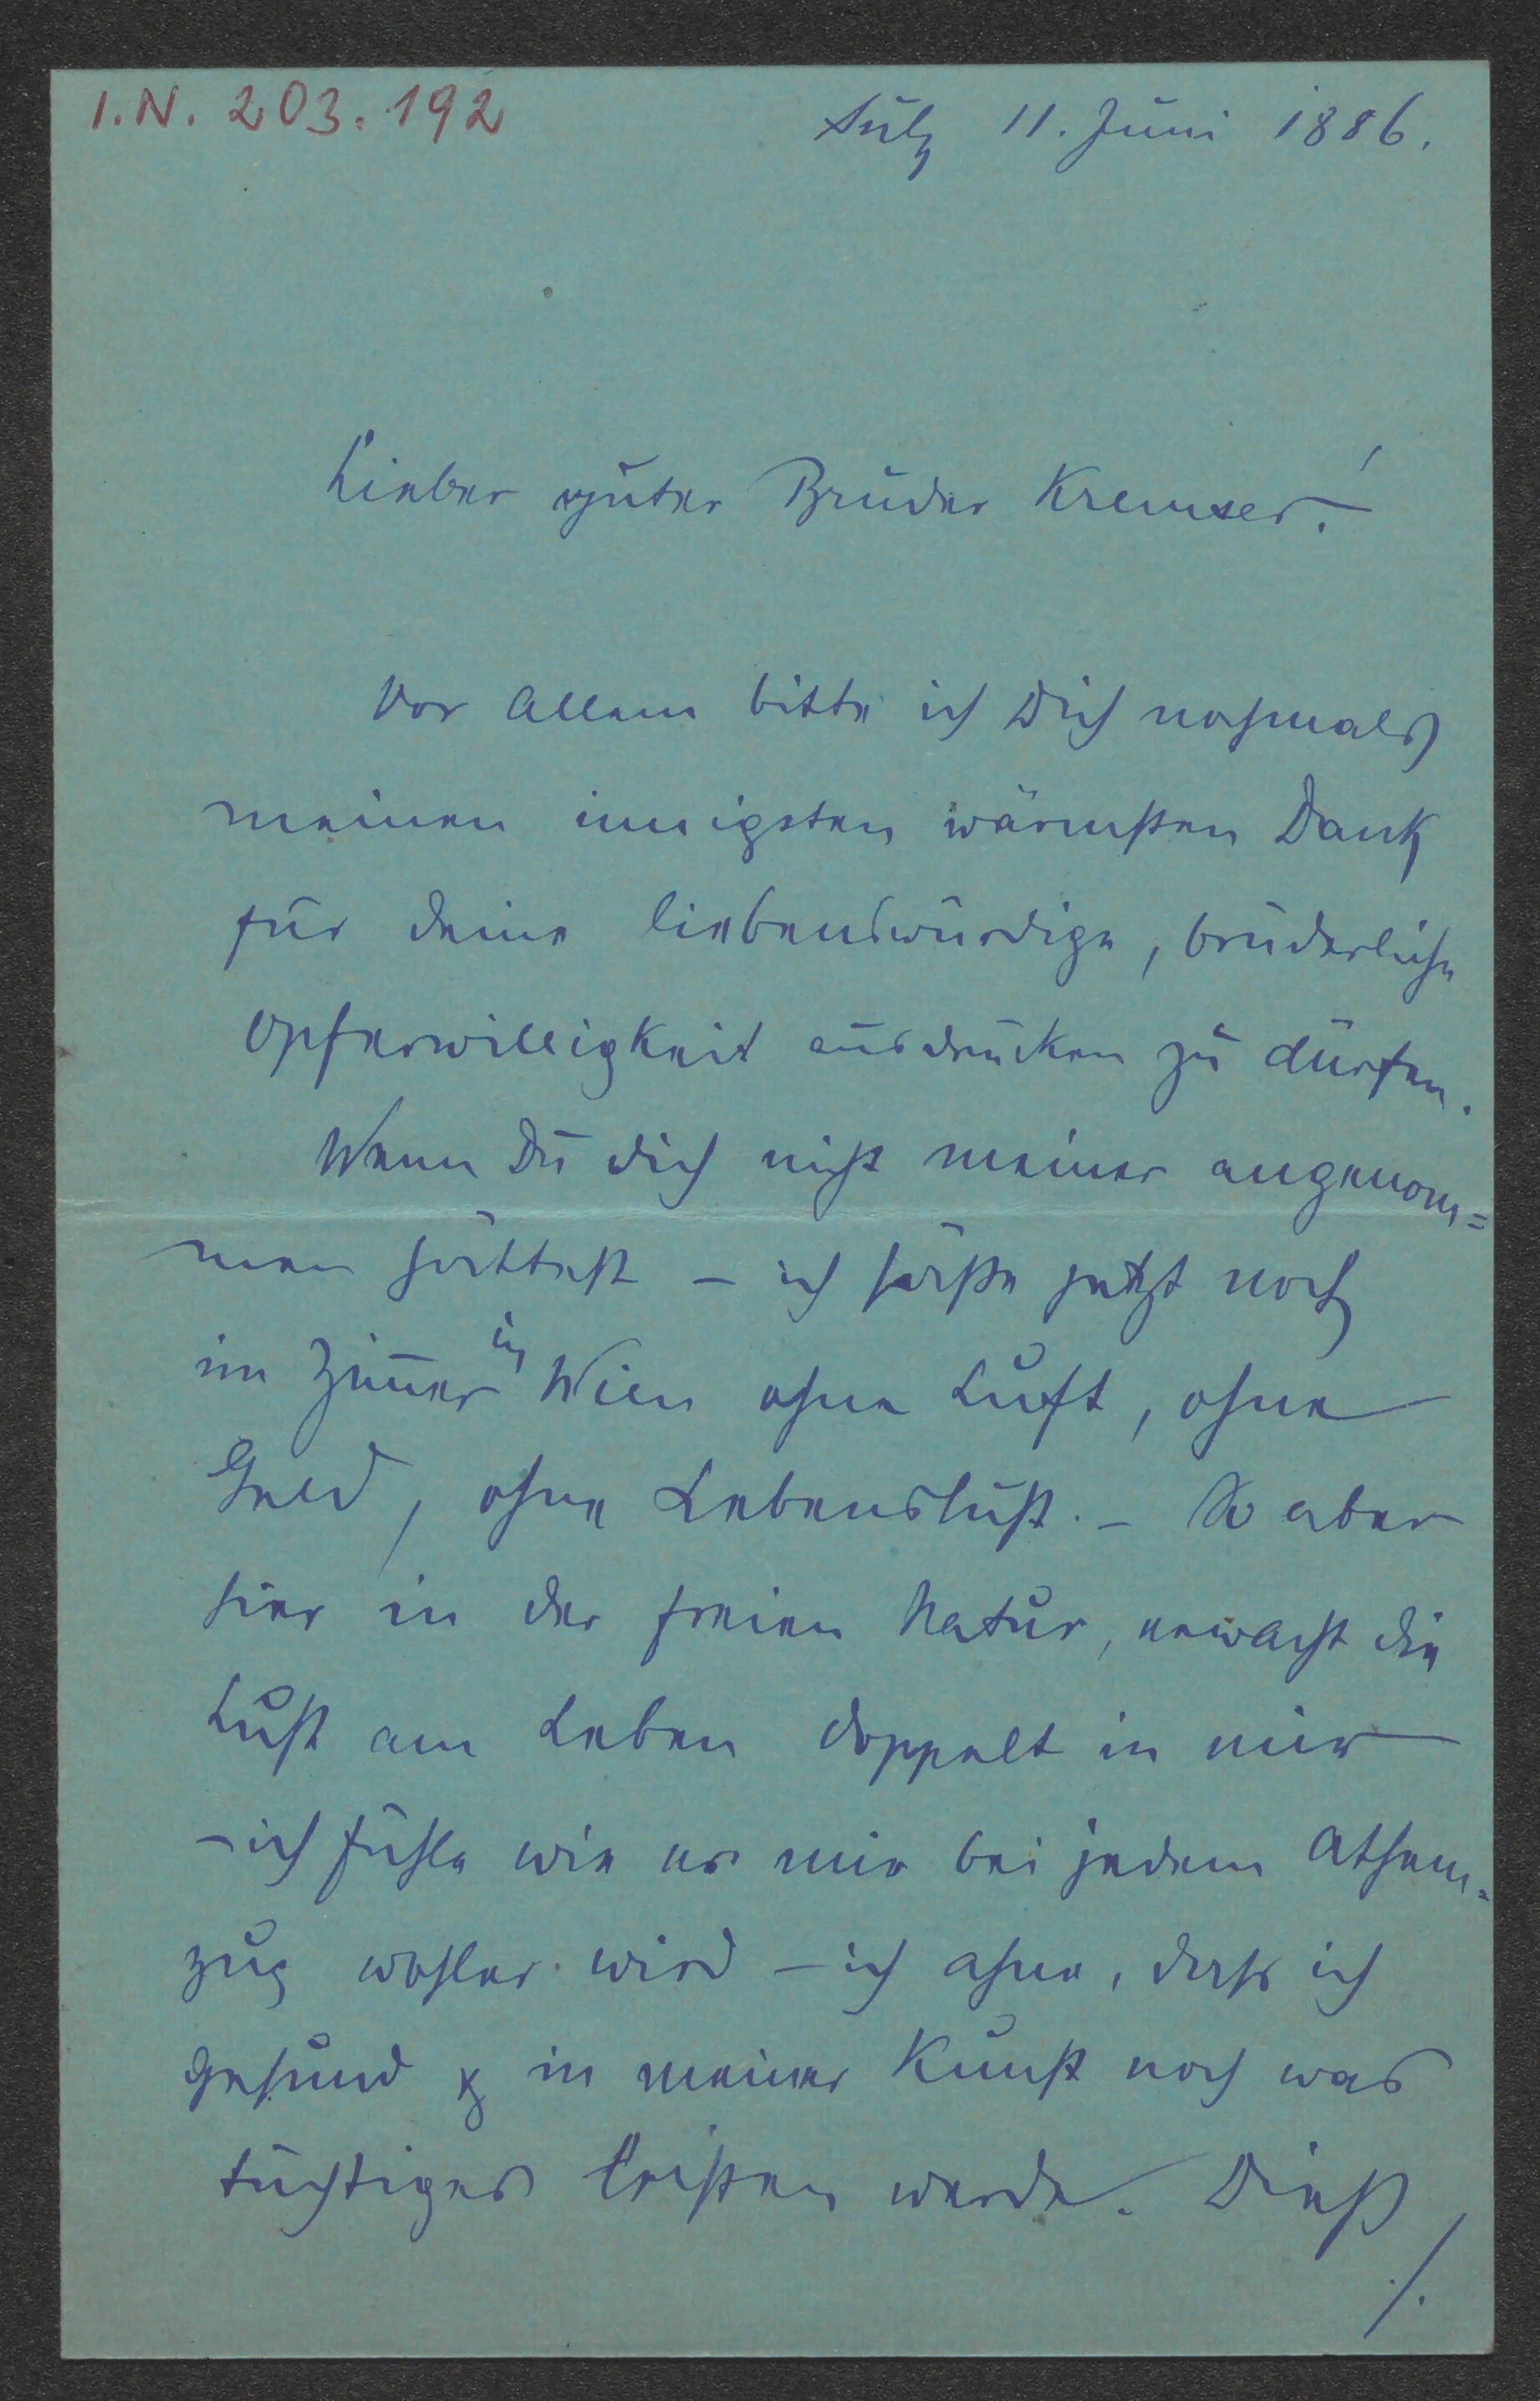 I.N. 203.192
Sulz 11. Juni 1886.
Lieber guter Bruder Kremser!
Vor Allem bitte ich Dich nochmals
meinen innigsten wärmsten Dank
für deine liebenswürdige, brüderliche
Opferwilligkeit ausdrücken zu dürfen.
Wenn Du dich nicht meiner angenom=
men hättest – ich säße jetzt noch
im Zim̄er in Wien ohne Luft, ohne
Geld, ohne Lebenslust. – So aber
hier in der freien Natur, erwacht die
Lust am Leben doppelt in mir
– ich fühle wie es mir bei jedem Athem=
zug wohler wird – ich ahne, dass ich
gesund & in meiner Kunst noch was
tüchtiges leisten werde. Dieß
./.